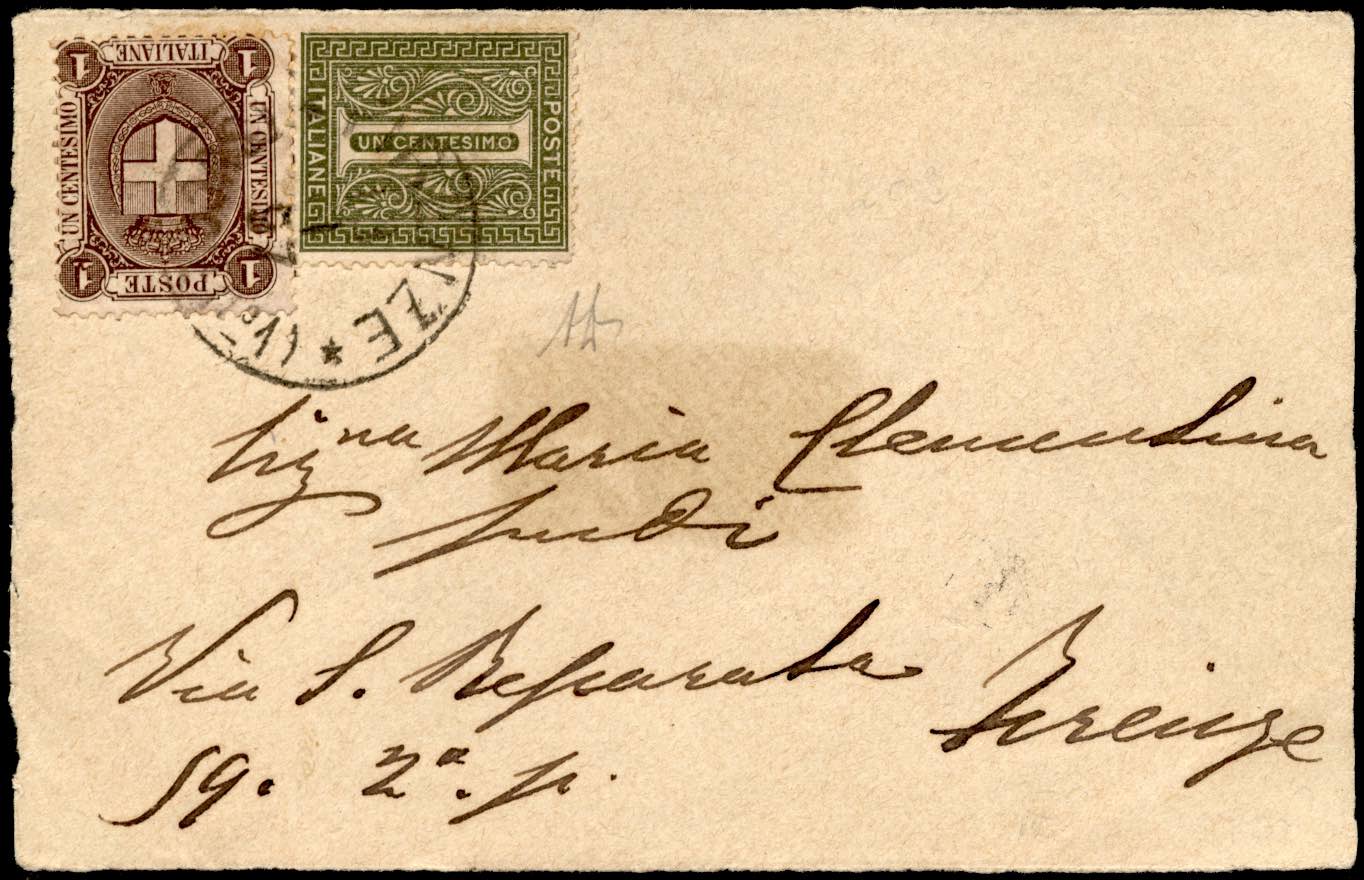 1 ITALIANE 1
UN CENTESIMO
UN CENTESIMO
1 POSTE 1
POSTE
ITALIANE
UN CENTESIMO
Sig.na Maria Clementina
Via S. Reparata
59. 2a. p.
Firenze